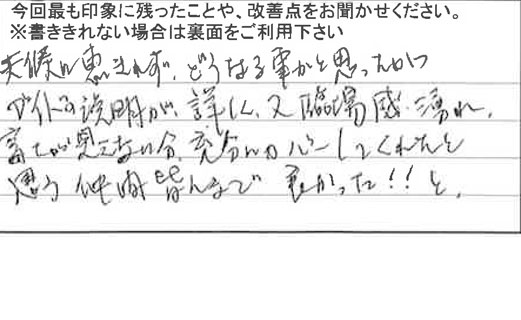 今回最も印象に残ったことや、改善点をお聞かせください。
※書ききれない場合は裏面をご利用下さい
天候に恵まれず、どうなる事かと思ったが
ガイドさん説明が、詳しく、又臨場感湧れ、
富士が見えない分、充分カバーしてくれたと
思う 仲間皆んなで 良かった!!と、